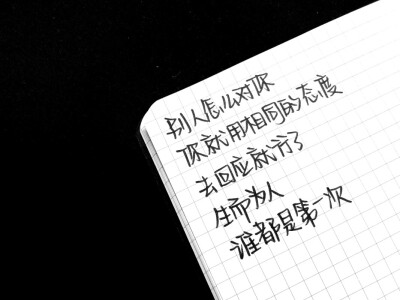 别人怎么对你
你就用相同的态度
去回应就行了
生而为人
谁都是第一次